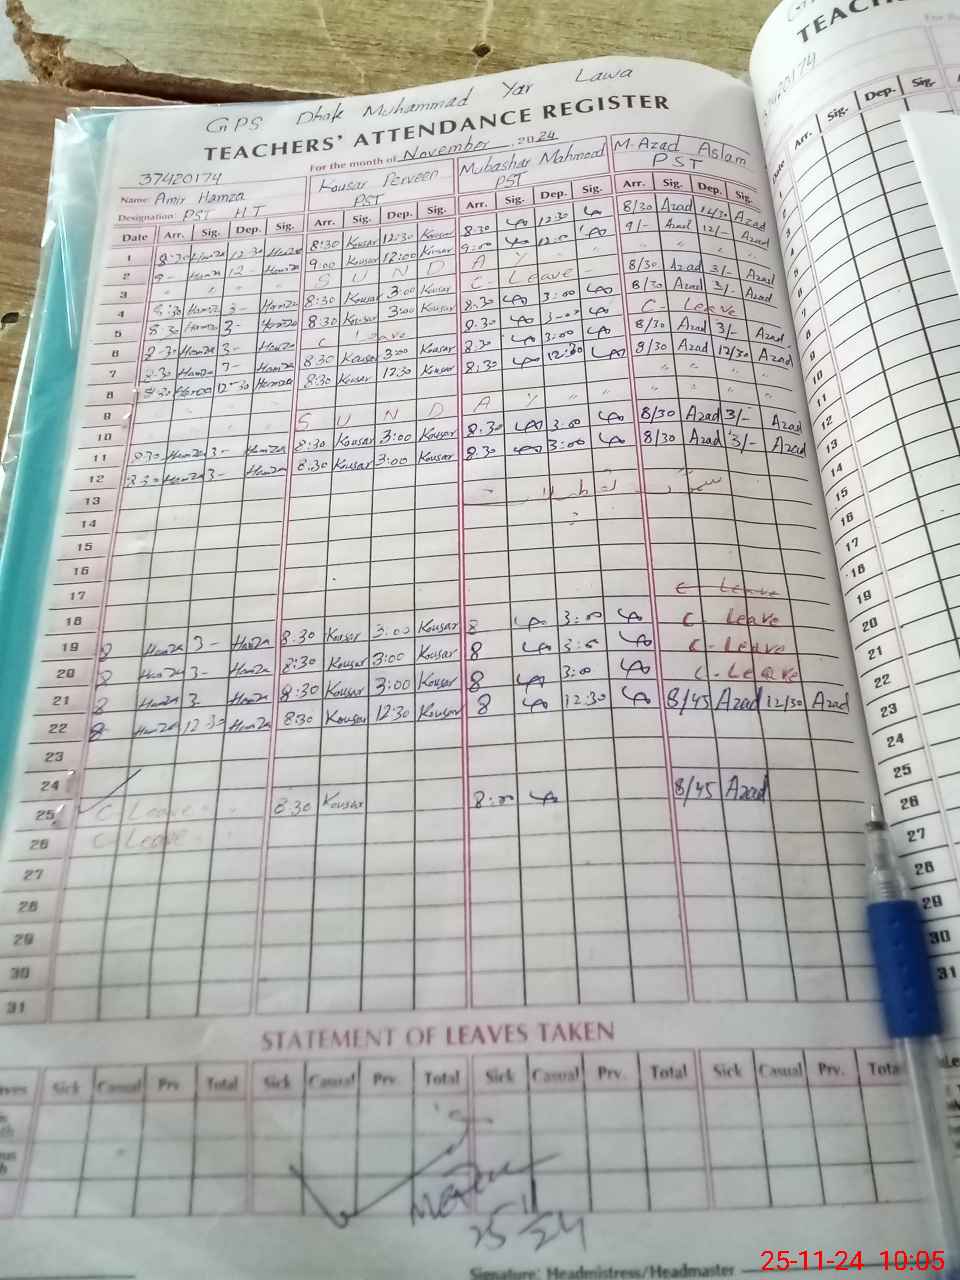 GPS Dhok Muhammad Yar Lawa
TEACHERS' ATTENDANCE REGISTER
For the month of November 2024
37420174
Name: Amir Hamza Kousar Perveen Mubashar Mahmood M. Azad Aslam
Designation: PST H.T PST PST PST
Date Arr. Sig. Dep. Sig. Arr. Sig. Dep. Sig. Arr. Sig. Dep. Sig. Arr. Sig. Dep. Sig.
1 8:30 Hamza 12:30 Hamza 8:30 Kousar 12:30 Kousar 8:30 12:30 8/30 Azad 12/30 Azad
2 9- Hamza 12- Hamza 9:00 Kousar 12:00 Kousar 9:00 12:00 9/- Azad 12/- Azad
3 " " " " S U N D A Y " " " "
4 8:30 Hamza 3- Hamza 8:30 Kousar 3:00 Kousar C- Leave - 8/30 Azad 3/- Azad
5 8:30 Hamza 3- Hamza 8:30 Kousar 3:00 Kousar 8:30 3:00 8/30 Azad 3/- Azad
6 8:30 Hamza 3- Hamza C Leave 8:30 3:00 C- Leave
7 8:30 Hamza 3- Hamza 8:30 Kousar 3:00 Kousar 8:30 3:00 8/30 Azad 3/- Azad
8 8:30 Hamza 12:30 Hamza 8:30 Kousar 12:30 Kousar 8:30 12:30 8/30 Azad 12/30 Azad
9 " " " "
10 S U N D A Y
11 8:30 Hamza 3- Hamza 8:30 Kousar 3:00 Kousar 8:30 3:00 8/30 Azad 3/- Azad
12 8:30 Hamza 3- Hamza 8:30 Kousar 3:00 Kousar 8:30 3:00 8/30 Azad 3/- Azad
13
14
15
16
17 C Leave
18 C- Leave
19 8 Hamza 3- Hamza 8:30 Kousar 3:00 Kousar 8 3:00 C- Leave
20 8 Hamza 3- Hamza 8:30 Kousar 3:00 Kousar 8 3:00 C- Leave
21 8 Hamza 3- Hamza 8:30 Kousar 3:00 Kousar 8 3:00
22 8 Hamza 12:30 Hamza 8:30 Kousar 12:30 Kousar 8 12:30 8/45 Azad 12/30 Azad
23
24
25 C- Leave - 8:30 Kousar 8:00 8/45 Azad
26 C- Leave -
27
28
29
30
31
STATEMENT OF LEAVES TAKEN
Sick Casual Prv. Total Sick Casual Prv. Total Sick Casual Prv. Total Sick Casual Prv. Total
25/11/24
Signature: Headmistress/Headmaster
Arr. Sig. Dep. Sig.
25-11-24 10:05